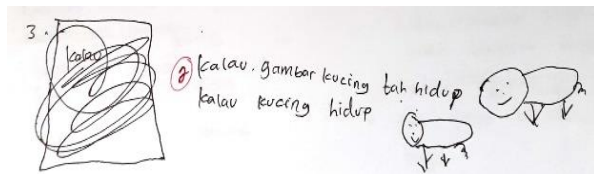 3.
kalau
2 kalau. gambar kucing tak hidup
kalau kucing hidup